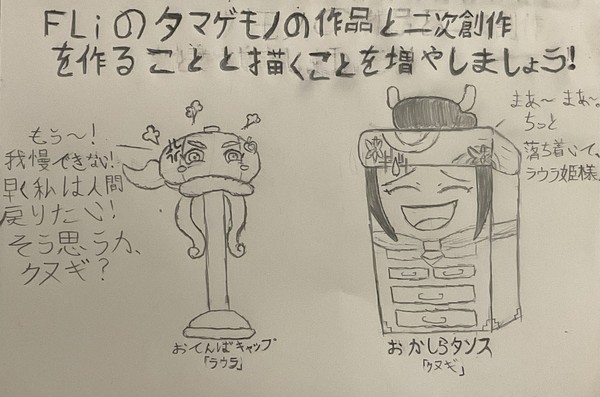 FLiのタマゲモノの作品と二次創作
を作ることと描くことを増やしましょう!
もう〜!
我慢できない!
早く私は人間
戻りたい!
そう思うカ、
クヌギ?
まあ〜まあ〜。
ちっと
落ち着いて、
ラウラ姫様。
おてんばキャップ
「ラウラ」
おかしらタンス
「クヌギ」